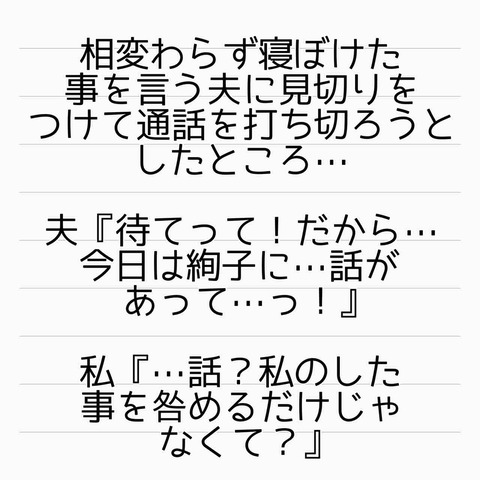 相変わらず寝ぼけた
事を言う夫に見切りを
つけて通話を打ち切ろうと
したところ…
夫『待てって！だから…
今日は絢子に…話が
あって…っ！』
私『…話？私のした
事を咎めるだけじゃ
なくて？』